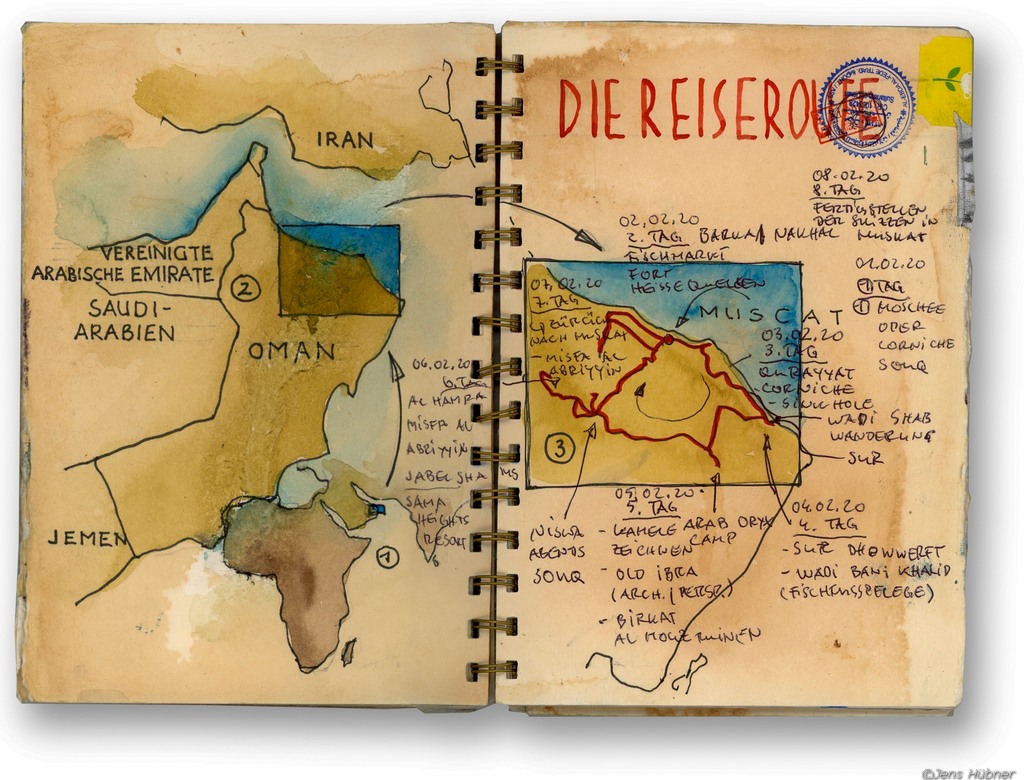 IRAN
VEREINIGTE
ARABISCHE EMIRATE
SAUDI-
ARABIEN
2
OMAN
06.02.20
6. TAG
AL HAMRA
MISFA AL
ABRIYYIN
JABEL SHAMS
SAMA
HEIGHTS
RESORT
JEMEN
1
DIE REISEROUTE
08.02.20
8. TAG
FERTIGSTELLEN
DER SKIZZEN IN
MUSKAT
02.02.20
2. TAG BARKA/NAKHAL
FISCHMARKT
FORT
HEISSE QUELLEN
01.02.20
1. TAG
MOSCHEE
ODER
CORNICHE
SOUQ
07.02.20
7. TAG
ZURÜCK
NACH MUSKAT
- MISFA AL
ABRIYYIN
MUSCAT
03.02.20
3. TAG
QURAYYAT
- CORNICHE
- SINKHOLE
WADI SHAB
WANDERUNG
SUR
3
NISWA
ABENDS
SOUQ
05.02.20
5. TAG
- KAMELE
ZEICHNEN
- OLD IBRA
(ARCH./PERSP.)
- BIRKAT
AL MOUZ RUINEN
ARAB ORYX
CAMP
04.02.20
4. TAG
- SUR DHOWWERFT
- WADI BANI KHALID
©Jens Hübner